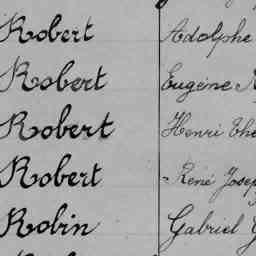 Robert Adolphe
Robert Eugène
Robert Henri
Robert René
Robin Gabriel